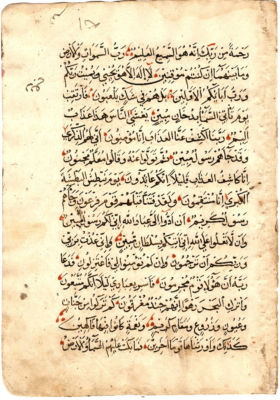 رحمة من ربك انه هو السميع العليم رب السموات والارض
وما بينهما ان كنتم موقنين لا اله الا هو يحيي ويميت ربكم
ورب ابائكم الاولين بل هم في شك يلعبون فارتقب
يوم تأتي السماء بدخان مبين يغشي الناس هذا عذاب
اليم ربنا اكشف عنا العذاب انا مؤمنون اني لهم الذكري
وقد جاءهم رسول مبين ثم تولوا عنه وقالوا معلم مجنون
انا كاشفوا العذاب قليلا انكم عائدون يوم نبطش البطشة
الكبري انا منتقمون ولقد فتنا قبلهم قوم فرعون وجاءهم
رسول كريم ان ادوا الي عباد الله اني لكم رسول امين
وان لا تعلوا علي الله اني اتيكم بسلطان مبين واني عذت بربي
وربكم ان ترجمون وان لم تؤمنوا لي فاعتزلون فدعا
ربه ان هؤلاء قوم مجرمون فاسر بعبادي ليلا انكم متبعون
واترك البحر رهوا انهم جند مغرقون كم تركوا من جنات
وعيون وزروع ومقام كريم ونعمة كانوا فيها فاكهين
كذلك واورثناها قوما اخرين فما بكت عليهم السماء والارض